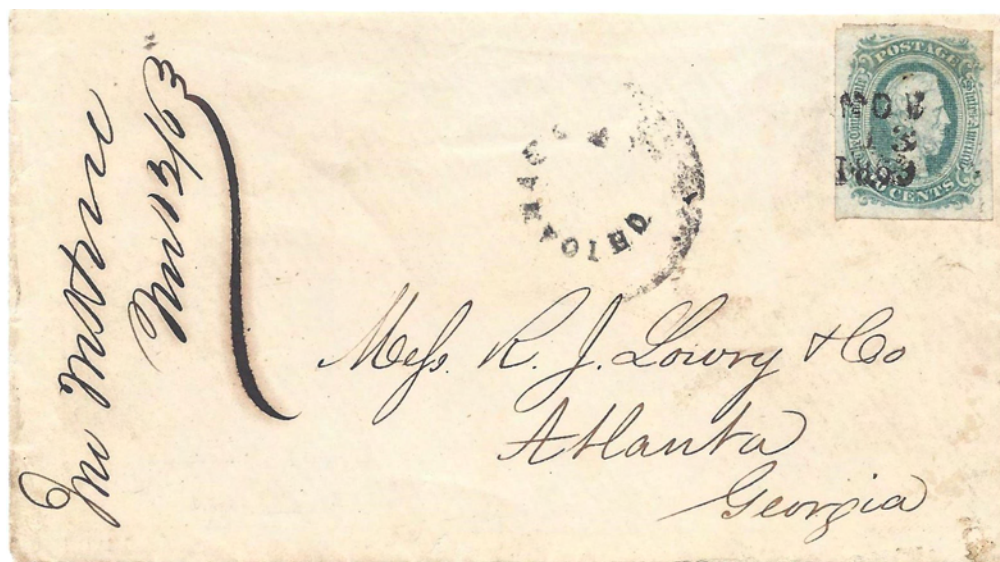 Jno McStone
Nov 13/63
POSTAGE
NOV
13
1863
CENTS
Mess. R. J. Lowry & Co
Atlanta
Georgia